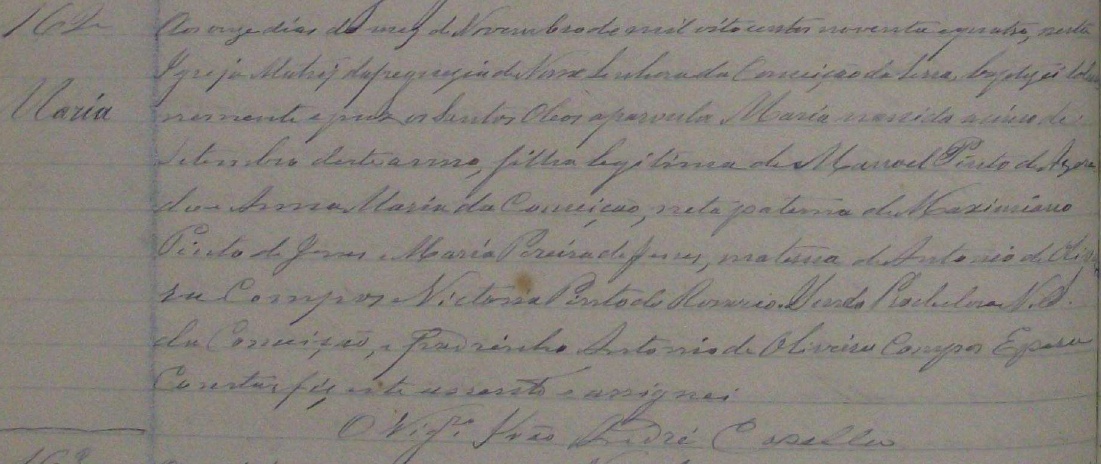 162
Aos onze dias do mez de Novembro de mil oito centos noventa e quatro, nesta
Igreja Matriz da freguezia de Nossa Senhora da Conceição da Serra, baptizei solem
Maria
nemente e puz os Santos Oleos a parvula Maria nascida a cinco de
Setembro deste anno, filha legitima de Manoel Pinto de Azere
do e Anna Maria da Conceição, neta paterna de Maximiano
Pinto de Jesus e Maria Pereira de Jesus, materna de Antonio de Oliv
ra Campos e Victoria Pinto do Rosario. Sendo Protectora N. S.
da Conceição, e Padrinho Antonio de Oliveira Campos E para
Constar fiz este assento e assignei
O Vigr.º João André Casella
163